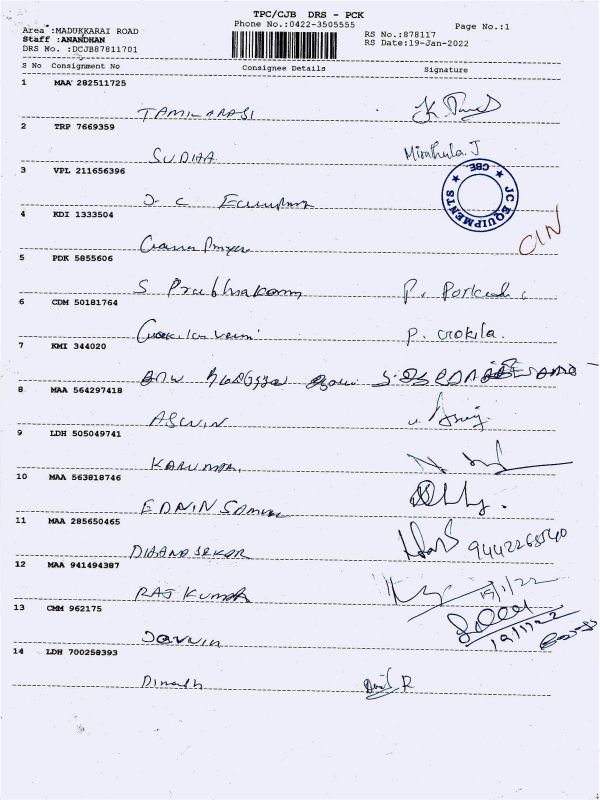 TPC/CJB DRS - PCK
Phone No.:0422-3505555
Page No.:1
Area :MADUKKARAI ROAD
Staff :ANANDHAN
DRS No. :DCJB87811701
RS No.:878117
RS Date:19-Jan-2022
S No Consignment No Consignee Details Signature
1 MAA 282511725
TAMILARASI
2 TRP 7669359
SUDHA Mirathula J
3 VPL 211656396
J. C Equipment
JC EQUIPMENTS CBE
4 KDI 1333504
CIN
5 PDK 5855606
S Prabhakaran P. Porkodi
6 CDM 50181764
P. Crokila.
7 KMI 344020
8 MAA 564297418
ASWIN
9 LDH 505049741
KARUMARI
10 MAA 563818746
EDWIN SAMUEL
11 MAA 285650465
DHANASEKAR
12 MAA 941494387
RAJ KUMAR 19/1/22
13 CMM 962175
19/1/22
14 LDH 700258393
Dinesh